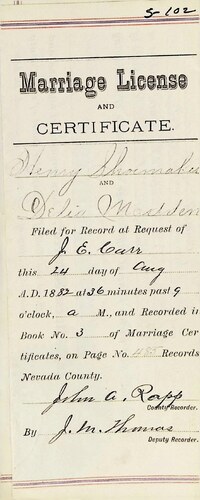 S-102
Marriage License
AND
CERTIFICATE.
Henry Shoemaker
AND
Delia Madden
Filed for Record at Request of
J. E. Carr
this 24 day of Aug
A.D. 1882 at 36 minutes past 9
o'clock, a M., and Recorded in
Book No. 3 of Marriage Cer
tificates, on Page No. Records
Nevada County.
John A. Rapp
County Recorder.
By J. M. Thomas
Deputy Recorder.